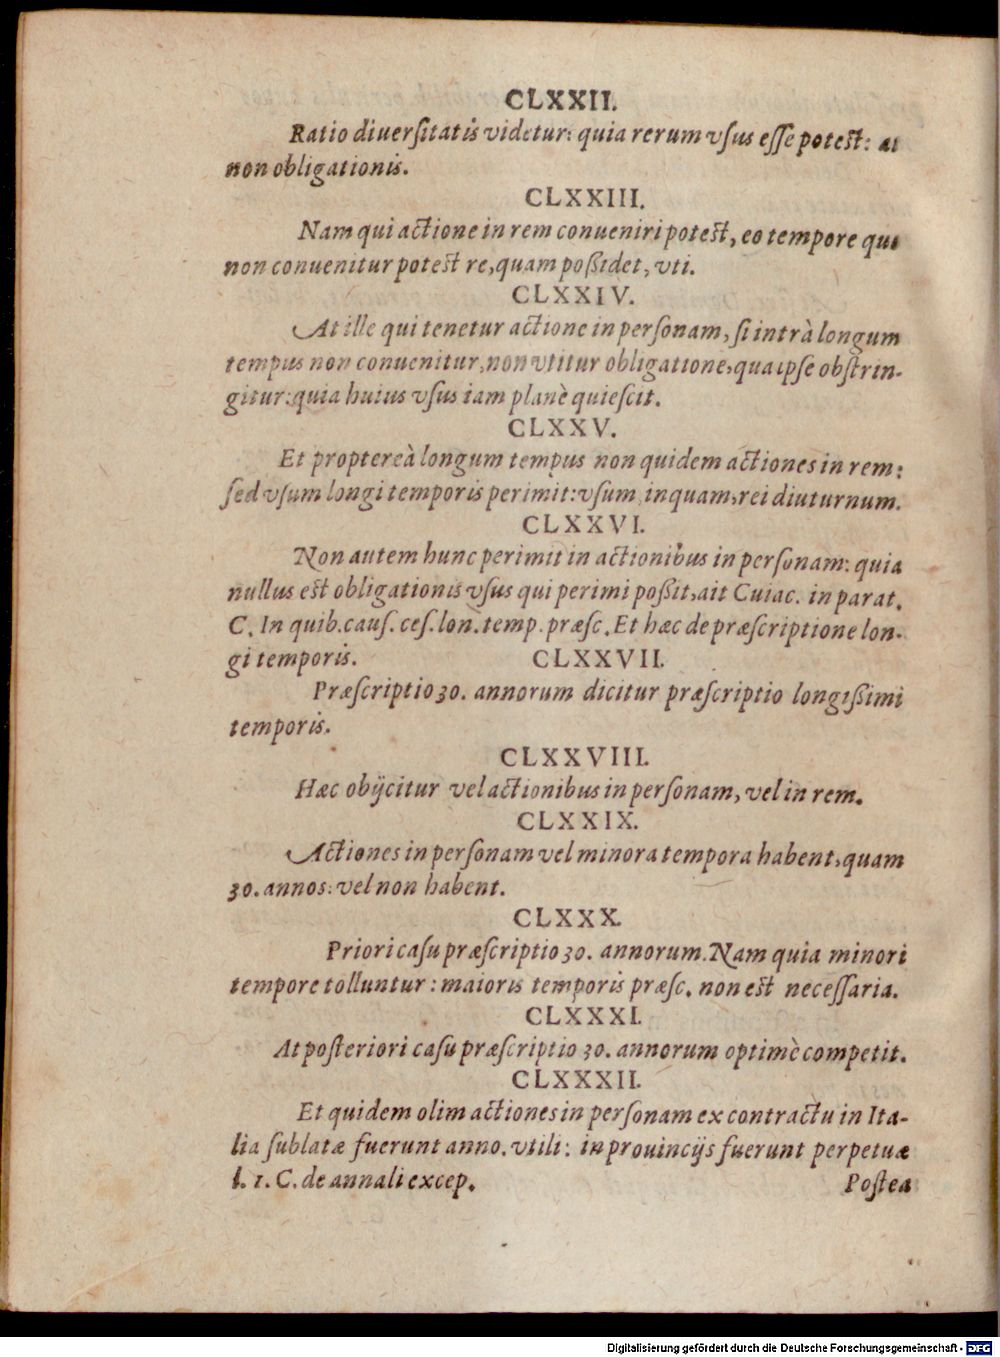 CLXXII.
Ratio diuerſitatis videtur: quia rerum vſus eſſe poteſt: at
non obligationis.
CLXXIII.
Nam qui actione in rem conueniri poteſt, eo tempore quo
non conuenitur poteſt re, quam poßidet, vti.
CLXXIV.
At ille qui tenetur actione in perſonam, ſi intrà longum
tempus non conuenitur, non vtitur obligatione, qua ipſe obſtrin-
gitur: quia huius vſus iam planè quieſcit.
CLXXV.
Et proptereà longum tempus non quidem actiones in rem:
ſed vſum longi temporis perimit: vſum, inquam, rei diuturnum.
CLXXVI.
Non autem hunc perimit in actionibus in perſonam: quia
nullus eſt obligationis vſus qui perimi poßit, ait Cuiac. in parat.
C. In quib. cauſ. ceſ. lon. temp. præſc. Et hæc de præſcriptione lon-
gi temporis.
CLXXVII.
Præſcriptio 30. annorum dicitur præſcriptio longißimi
temporis.
CLXXVIII.
Hæc obijcitur vel actionibus in perſonam, vel in rem.
CLXXIX.
Actiones in perſonam vel minora tempora habent, quam
30. annos: vel non habent.
CLXXX.
Priori caſu præſcriptio 30. annorum. Nam quia minori
tempore tolluntur: maioris temporis præſc. non eſt neceſſaria.
CLXXXI.
At poſteriori caſu præſcriptio 30. annorum optimè competit.
CLXXXII.
Et quidem olim actiones in perſonam ex contractu in Ita-
lia ſublatæ fuerunt anno. vtili: in prouincijs fuerunt perpetuæ
l. 1. C. de annali excep.
Poſtea
Digitalisierung gefördert durch die Deutsche Forschungsgemeinschaft - DFG